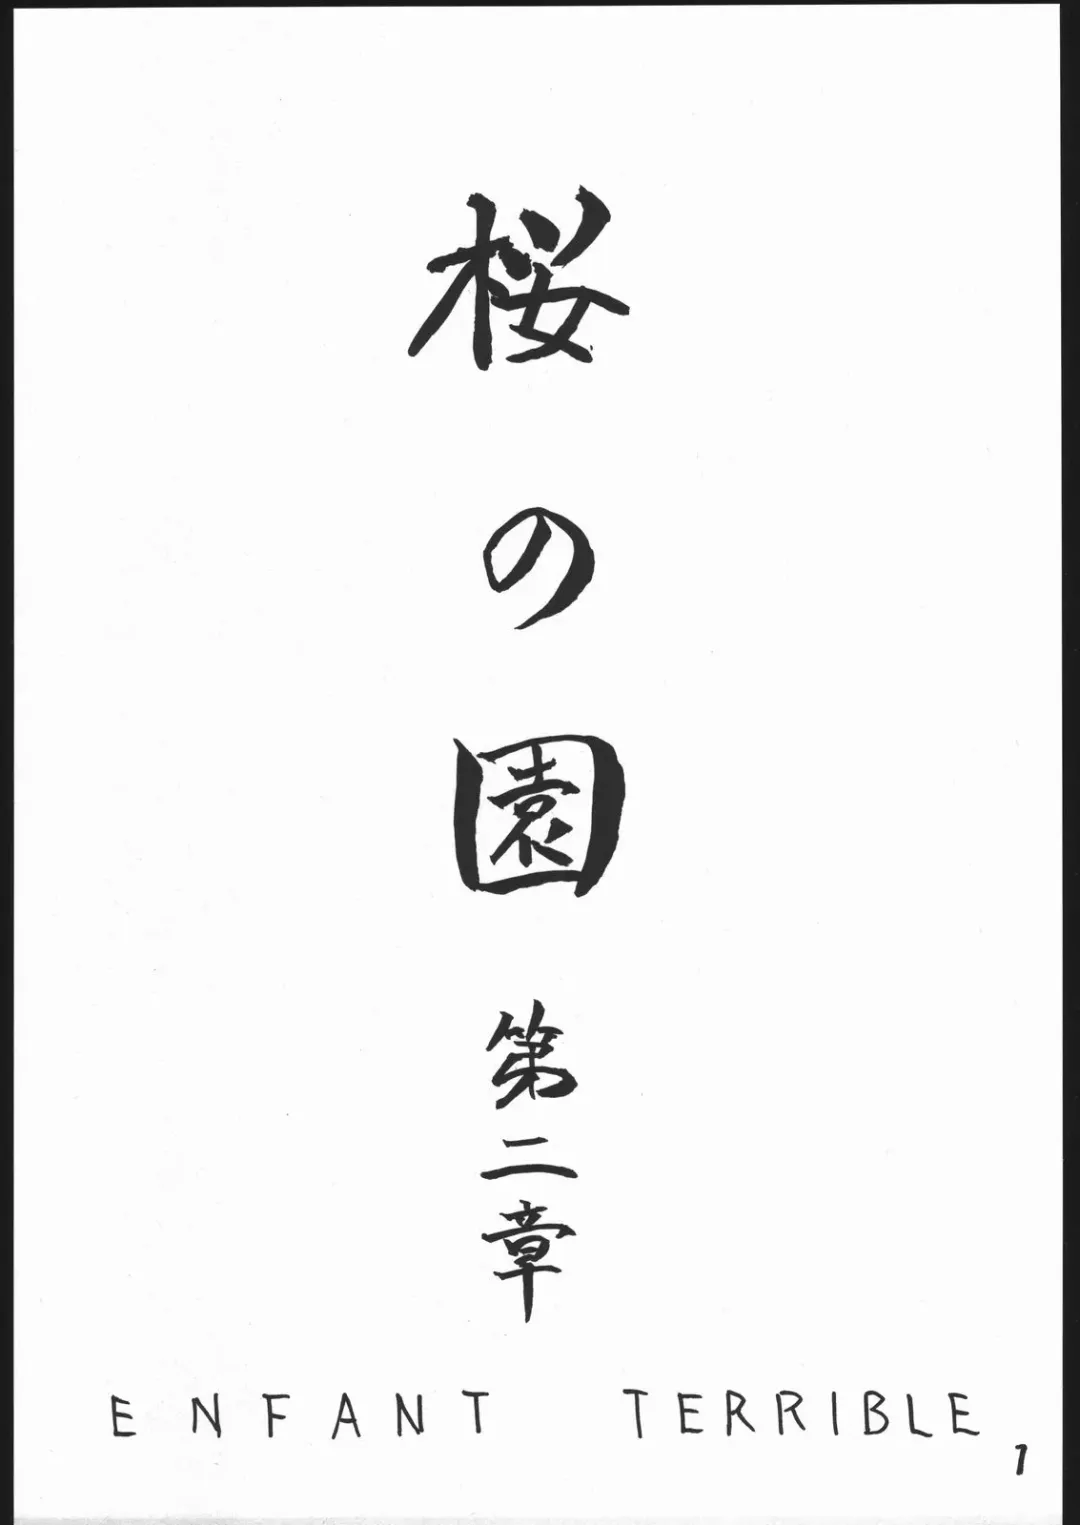 桜の園
第二章
ENFANT TERRIBLE
1